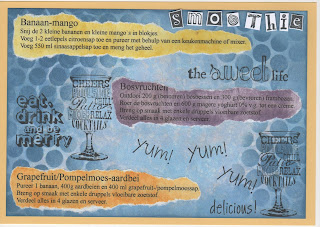 Smoothie
Banaan-mango
Snij de 2 kleine bananen en kleine mango's in blokjes
Voeg 1-2 eetlepels citroensap toe en pureer met behulp van een keukenmachine of mixer.
Voeg 550 ml sinaasappelsap toe en meng het geheel.
the sweet life
Bosvruchten
Ontdooi 200 g(bevroren) bosbessen en 300 g(bevroren) frambozen.
Roer de bosvruchten en 600 g magere yoghurt 0% v.g. tot een crème.
Breng op smaak met enkele druppels vloeibare zoetstof.
Verdeel alles in 4 glazen en serveer.
CHEERS
Party
RELAX
COCKTAILS
eat,
drink
and be
merry
yum! yum!
yum!
CHEERS
Party
RELAX
COCKTAILS
Grapefruit/Pompelmoes-aardbei
Pureer 1 banaan, 400g aardbeien en 400 ml grapefruit/pompelmoessap.
Breng op smaak met enkele druppels vloeibare zoetstof.
Verdeel alles in 4 glazen en serveer.
delicious!